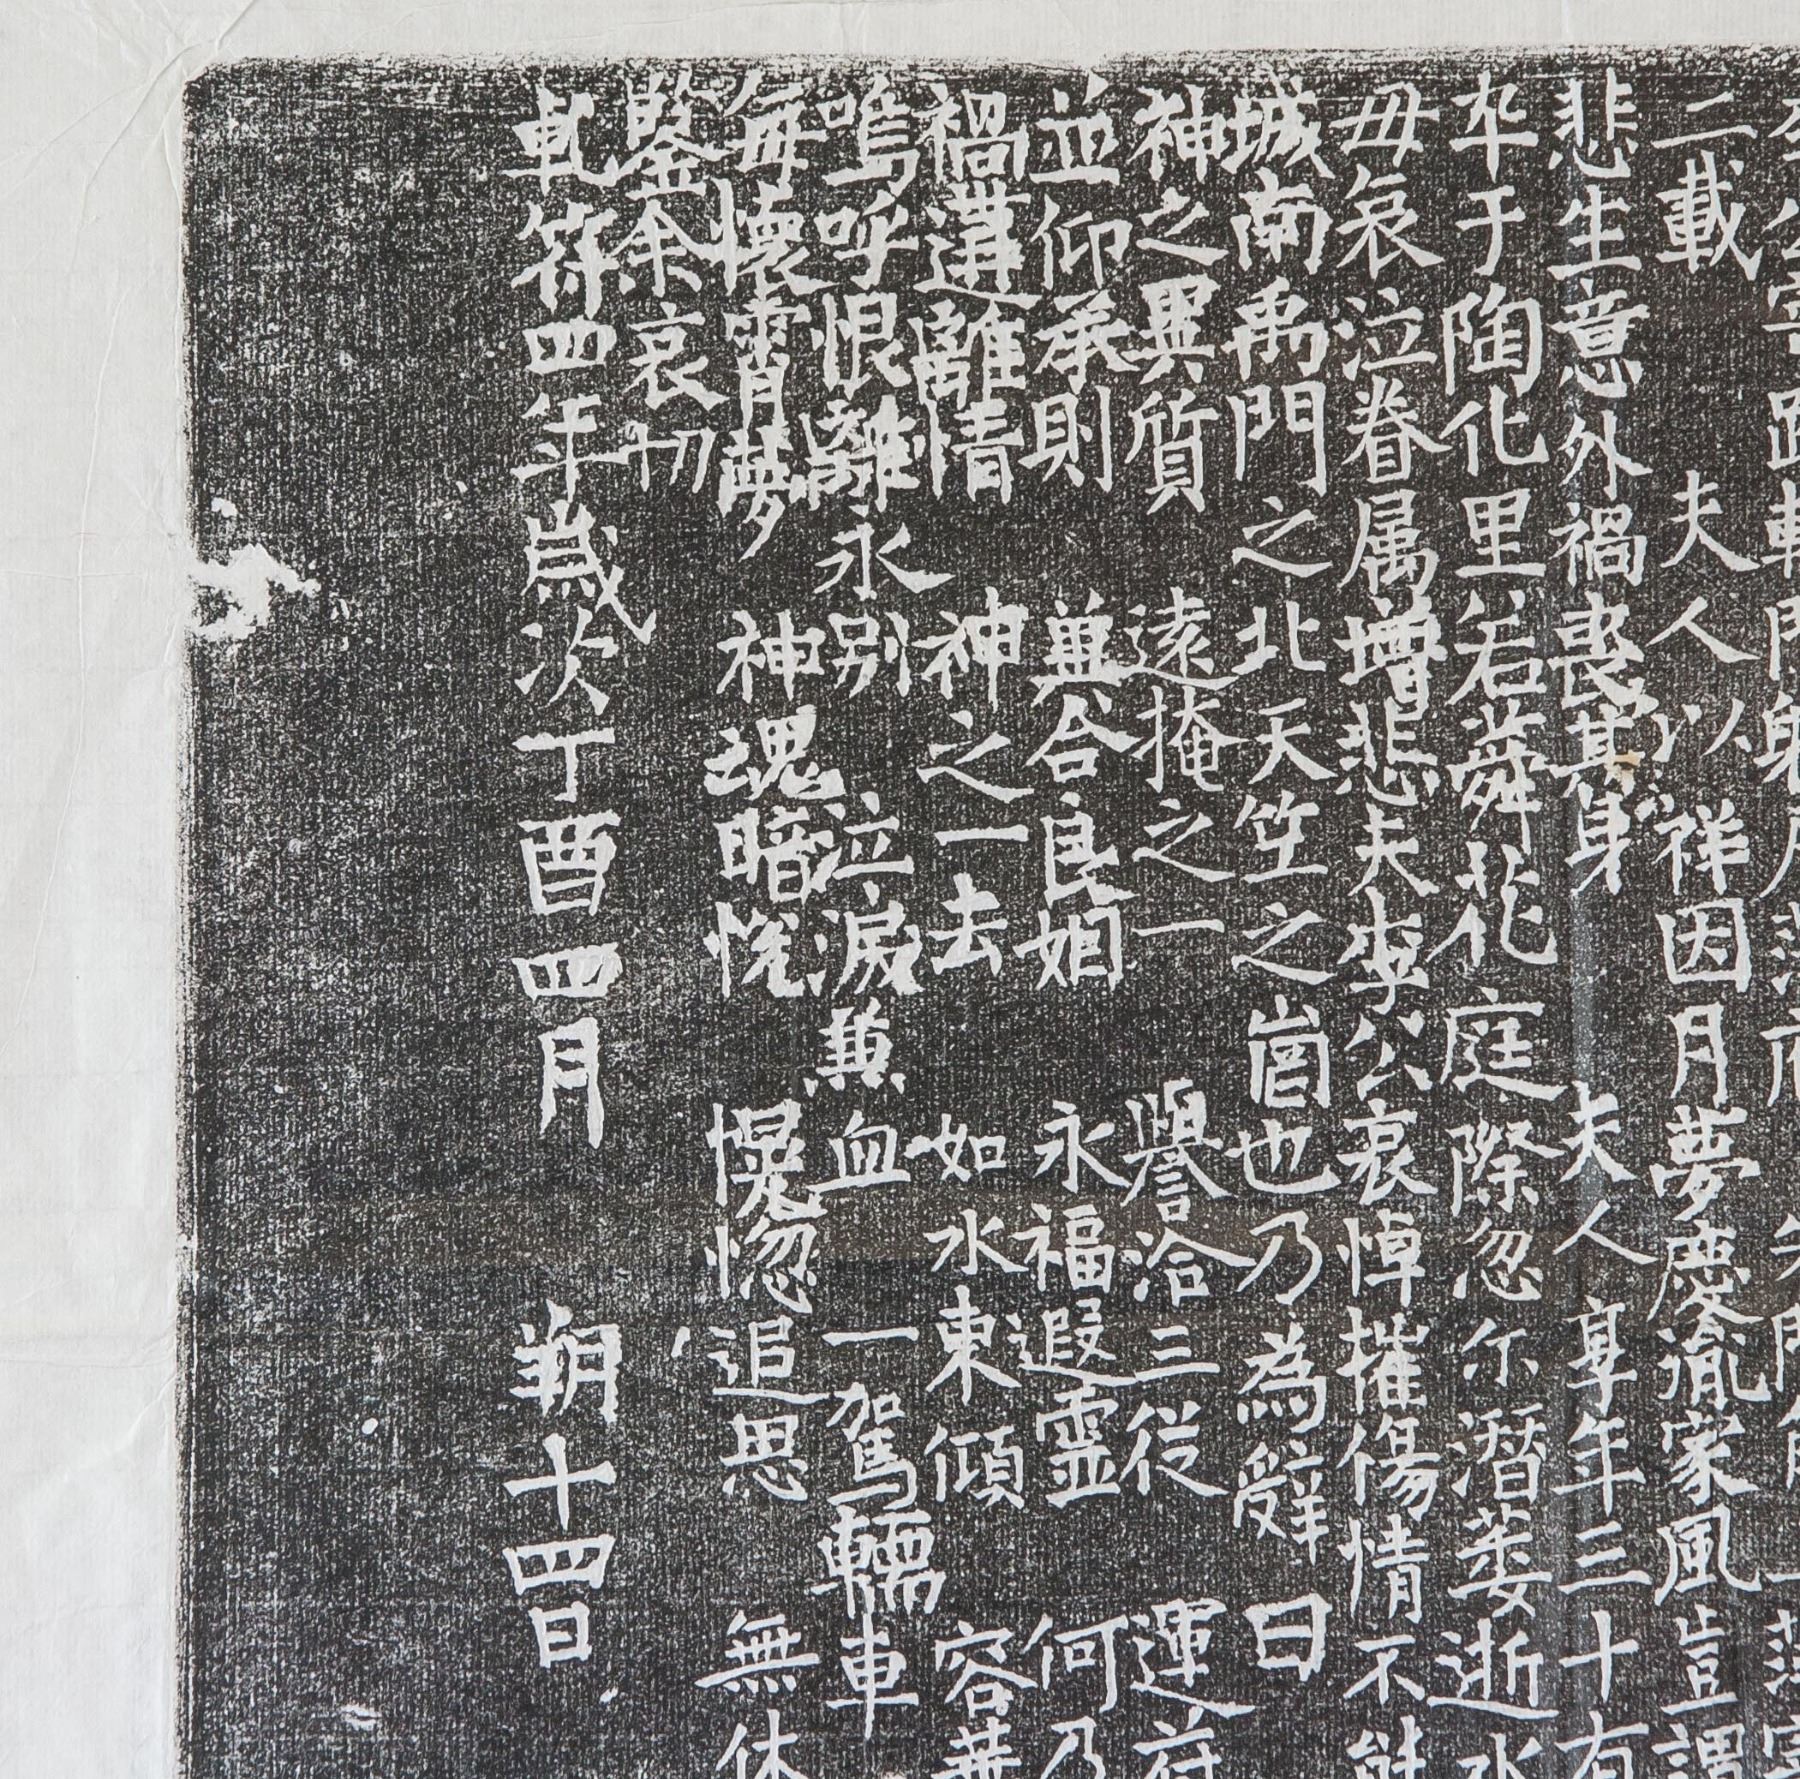 二載　夫人以祥因月夢慶流家風豈謂
悲生意外禍喪其身　夫人享年三十有
卒于陶化里若蕣花庭除忽尔潛萎逝水
毋哀泣眷属增悲夫李公哀悼摧傷情不能
城南禹門之北天竺之崗也乃為辞曰
神之異質　遠掩之一　譽洽三從　運苻
並仰承則　兼合良姻　永福遐靈　何乃
禍遘離情　神之一去　如水東傾　容華
嗚呼恨難永別　泣淚兼血　一駕輀車
每懷霄夢　神魂暗恍　愰惚追思　無休
鑒余哀切
乹符四年歲次丁酉四月　朔十四日